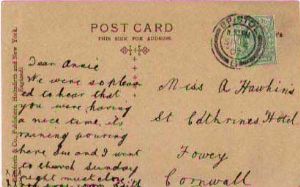 POST CARD
THIS SIDE FOR ADDRESS.
BRISTOL
Dear Annie
We were so pleased
to hear that
you were having
a nice time, its
raining pouring
here Sue and I went
to church Sunday
night must close
Miss A Hawkins
St Cathrines Hotel
Fowey
Cornwall